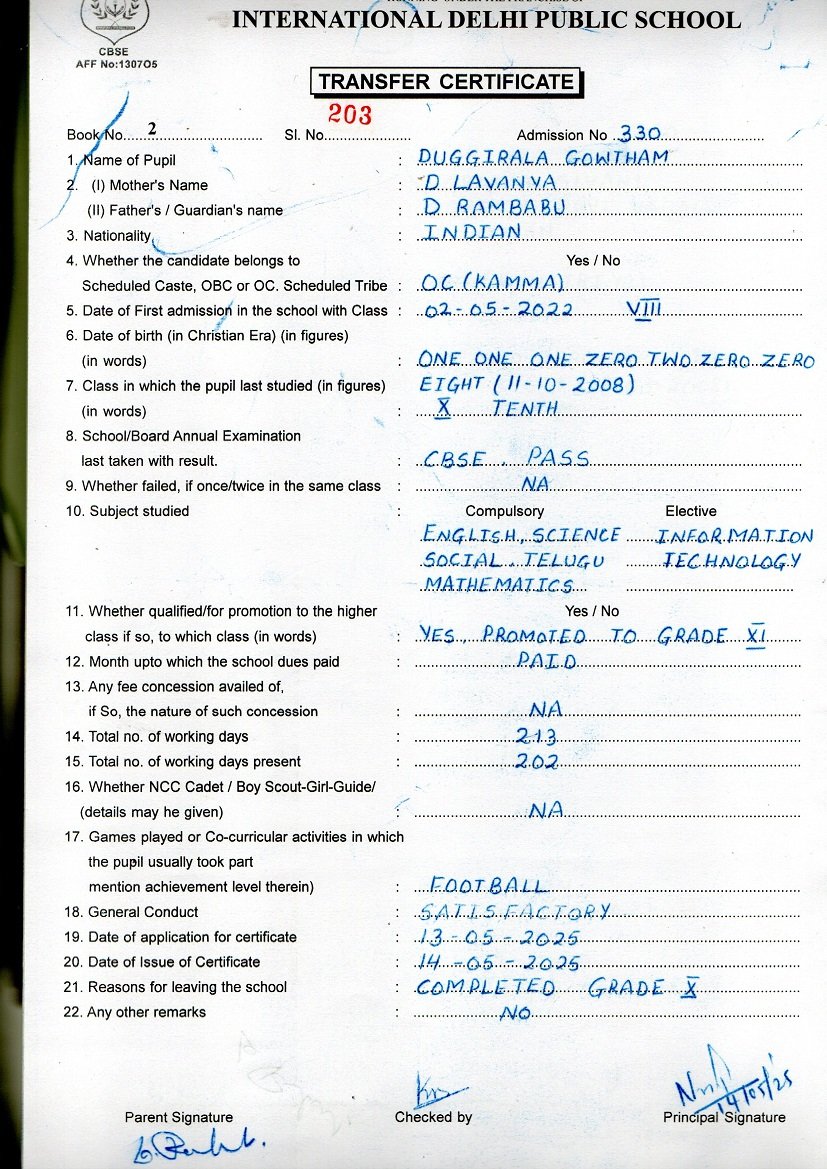 INTERNATIONAL DELHI PUBLIC SCHOOL
CBSE
AFF No:130705
TRANSFER CERTIFICATE
Book No. 2 Sl. No. 203 Admission No 330
1. Name of Pupil : DUGGIRALA GOWTHAM
2. (I) Mother's Name : D LAVANYA
(II) Father's / Guardian's name : D RAMBABU
3. Nationality : INDIAN
4. Whether the candidate belongs to Yes / No
Scheduled Caste, OBC or OC. Scheduled Tribe : OC (KAMMA)
5. Date of First admission in the school with Class : 02-05-2022 VIII
6. Date of birth (in Christian Era) (in figures)
(in words) : ONE ONE ONE ZERO TWO ZERO ZERO
7. Class in which the pupil last studied (in figures) EIGHT (11-10-2008)
(in words) : X TENTH
8. School/Board Annual Examination
last taken with result. : CBSE, PASS
9. Whether failed, if once/twice in the same class : NA
10. Subject studied : Compulsory Elective
ENGLISH, SCIENCE INFORMATION
SOCIAL, TELUGU TECHNOLOGY
MATHEMATICS
11. Whether qualified/for promotion to the higher Yes / No
class if so, to which class (in words) : YES, PROMOTED TO GRADE XI
12. Month upto which the school dues paid : PAID
13. Any fee concession availed of,
if So, the nature of such concession : NA
14. Total no. of working days : 213
15. Total no. of working days present : 202
16. Whether NCC Cadet / Boy Scout-Girl-Guide/
(details may he given) : NA
17. Games played or Co-curricular activities in which
the pupil usually took part
mention achievement level therein) : FOOTBALL
18. General Conduct : SATISFACTORY
19. Date of application for certificate : 13-05-2025
20. Date of Issue of Certificate : 14-05-2025
21. Reasons for leaving the school : COMPLETED GRADE X
22. Any other remarks : NO
14/05/25
Parent Signature Checked by Principal Signature